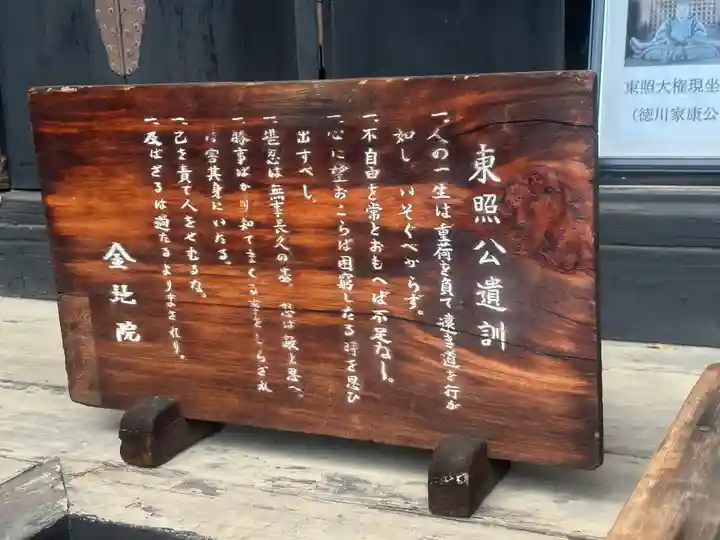 東照公遺訓
一、人の一生は重荷を負て遠き道を行が
如し、いそぐべからず。
一、不自由を常とおもへば不足なし。
一、心に望おこらば困窮したる時を思ひ
出すべし。
一、堪忍は無事長久の基、怒は敵と思へ。
一、勝事ばかり知てまくる事をしらざれ
ば害其身にいたる。
一、己を責て人をせむるな。
一、及ばざるは過たるよりまされり。
金地院
東照大権現坐
(徳川家康公